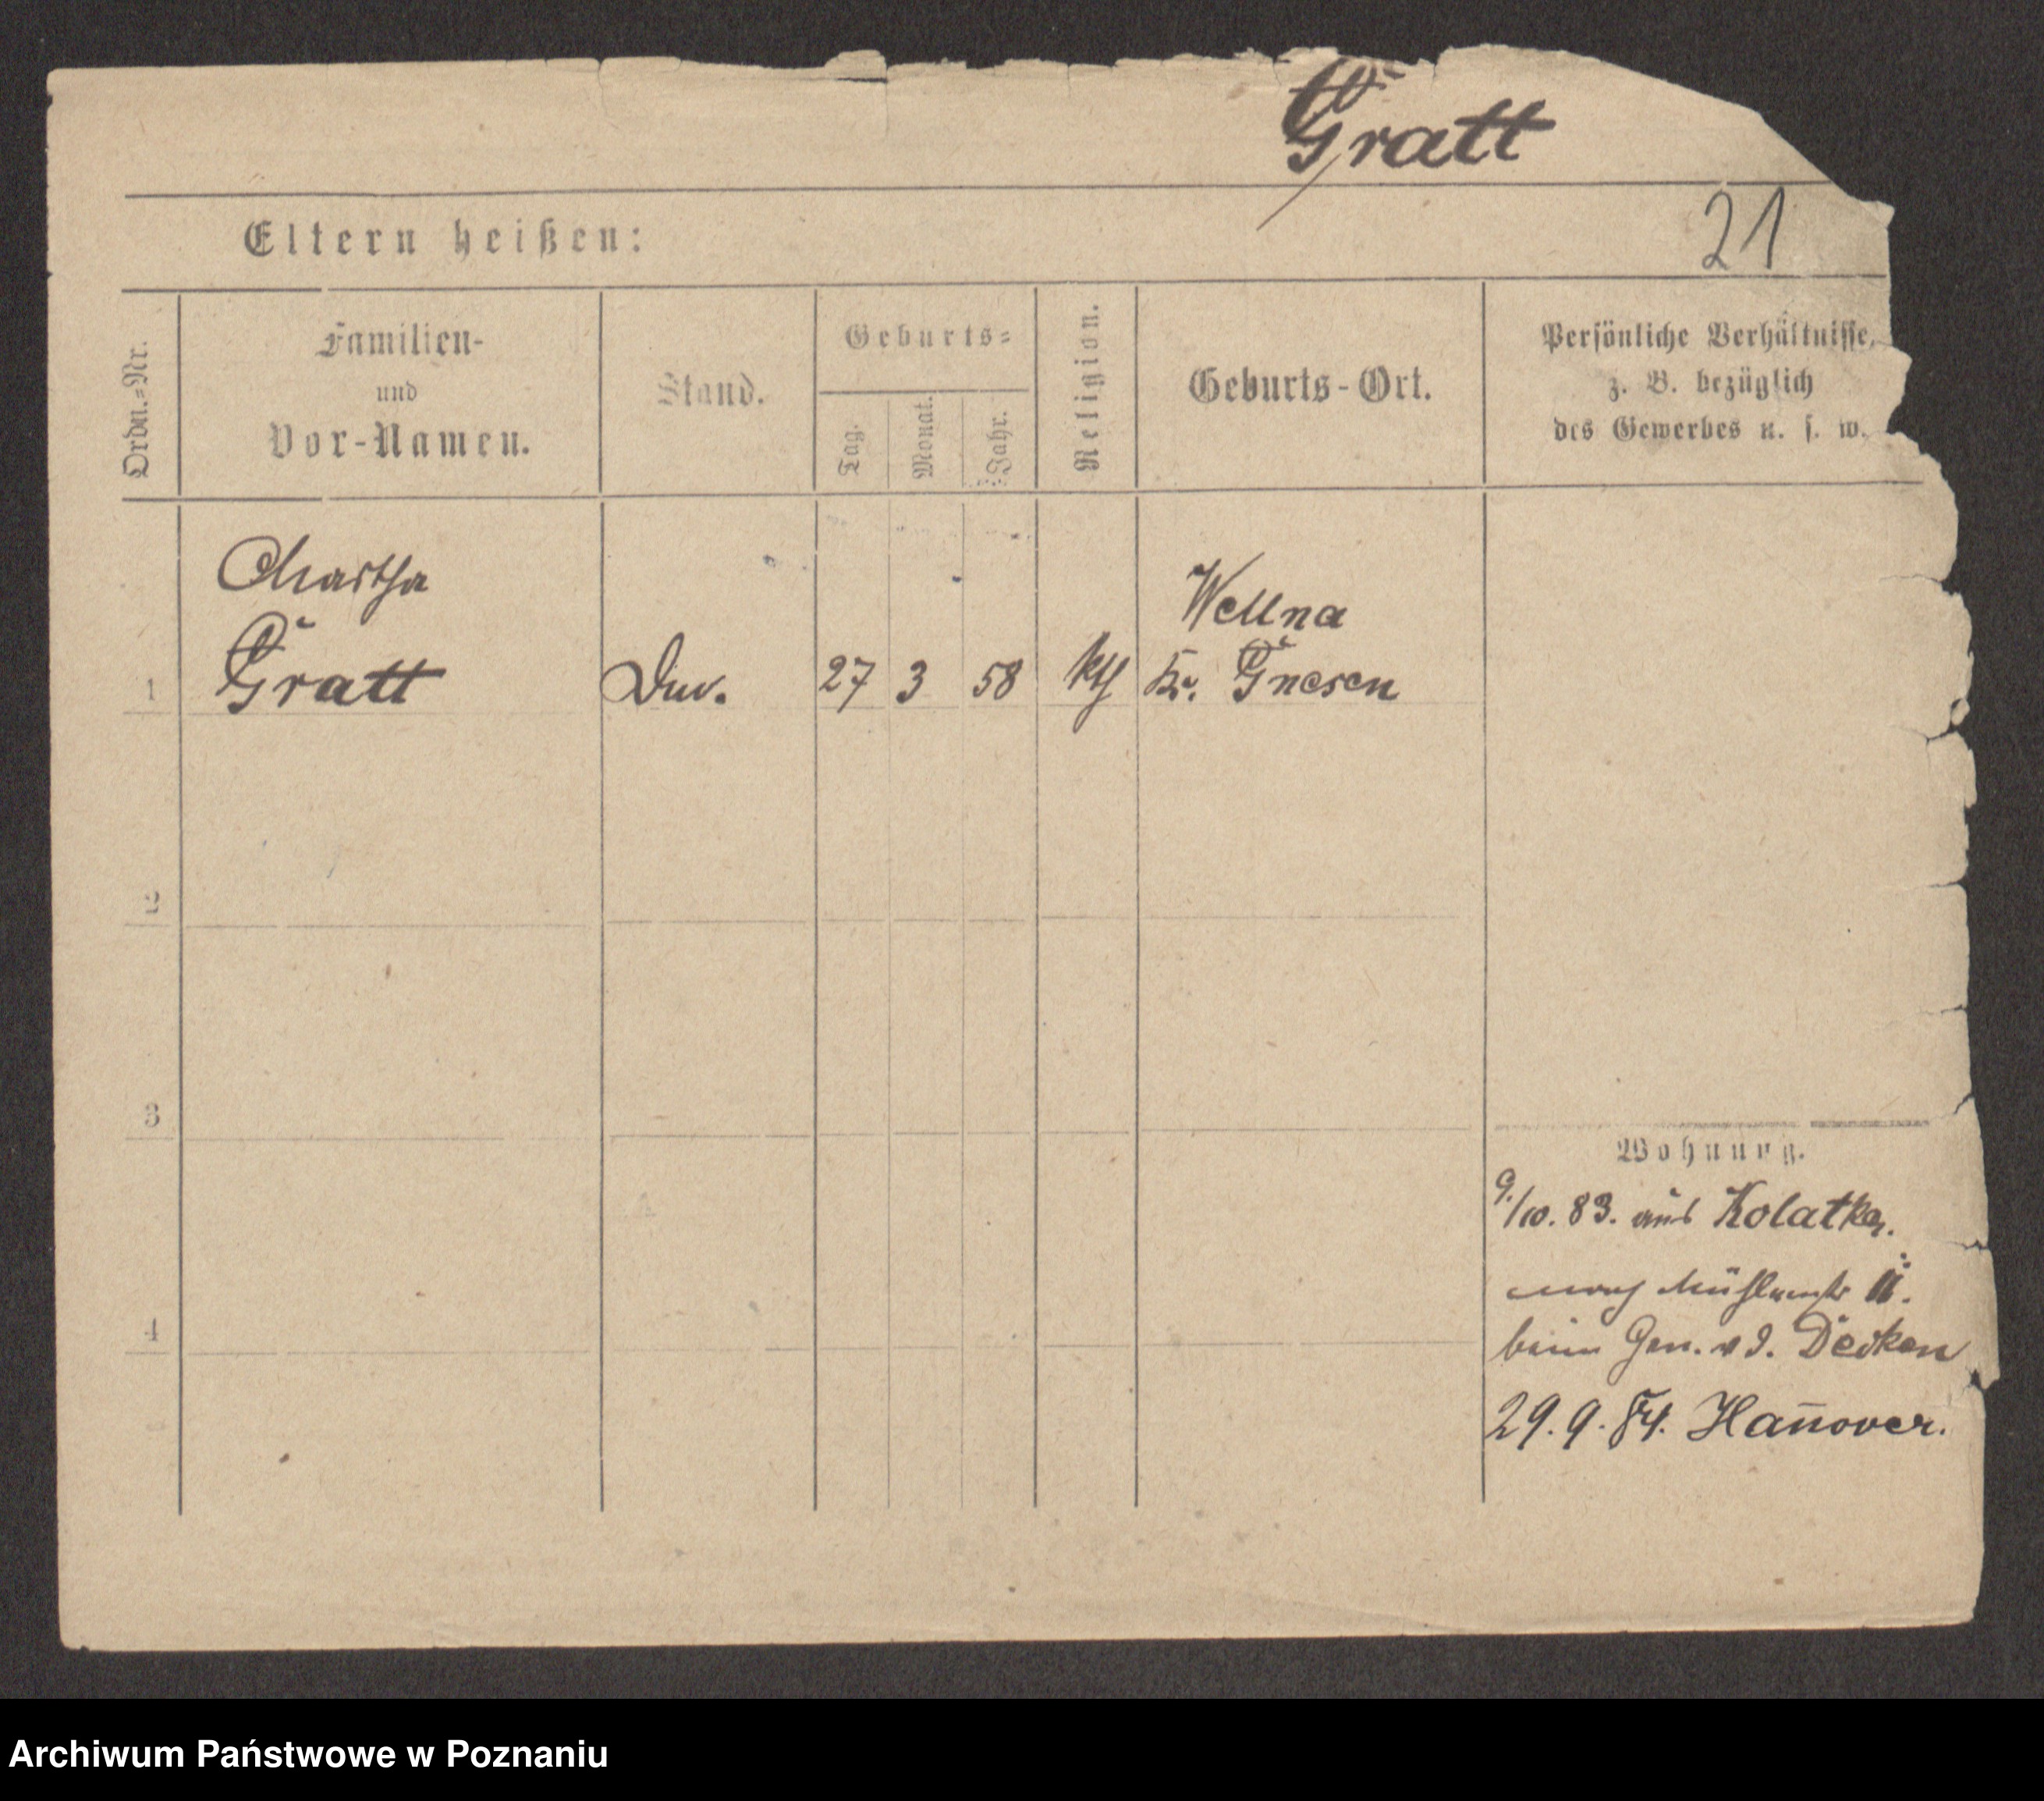 Gratt
21
Eltern heißen:
Ordn.=Nr.
Familien-
und
Vor-Namen.
Stand.
Geburts=
Tag.
Monat.
Jahr.
Religion.
Geburts-Ort.
Persönliche Verhältnisse,
z. B. bezüglich
des Gewerbes u. s. w.
Martha
Wellna
1 Gratt 27 3 58 kth Kr. Gnesen
2
3
Wohnung.
9./10. 83. aus Kolatka.
nach Mühlenstr 11.
4
beim Gen. v d. Decken
29. 9. 84. Han̄over.
Archiwum Państwowe w Poznaniu